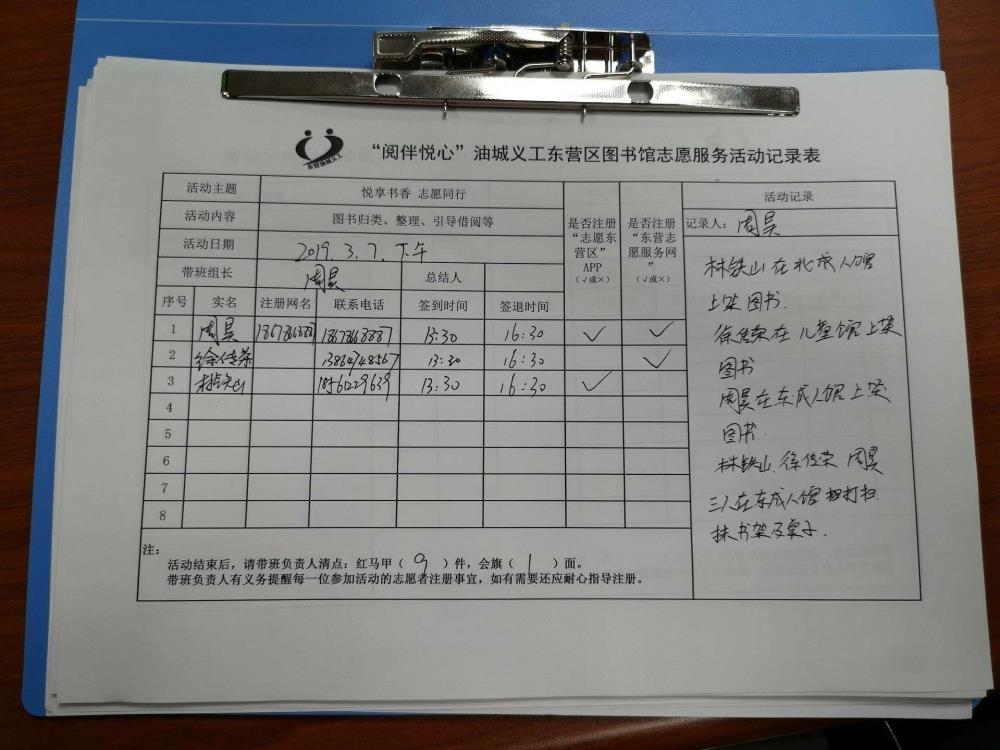 “阅伴悦心”油城义工东营区图书馆志愿服务活动记录表
活动主题 悦享书香 志愿同行
活动内容 图书归类、整理、引导借阅等
活动日期 2019. 3. 7. 下午
带班组长 周昊 总结人
序号 实名 注册网名 联系电话 签到时间 签退时间
是否注册
“志愿东
营区”
APP
(√或×)
是否注册
“东营志
愿服务网
”
(√或×)
1 周昊 18678668887 18678668887 13:30 16:30 √ √
2 徐传荣 13864748567 13:30 16:30 √
3 林铁山 18561229639 13:30 16:30 √
4
5
6
7
8
注:
活动结束后，请带班负责人清点：红马甲（ 9 ）件，会旗（ 1 ）面。
带班负责人有义务提醒每一位参加活动的志愿者注册事宜，如有需要还应耐心指导注册。
活动记录
记录人：周昊
林铁山在北成人馆
上架图书.
徐传荣在儿童馆上架
图书
周昊在东成人馆上架
图书.
林铁山.徐传荣 周昊
三人在东成人馆打扫.
抹书架及桌子.